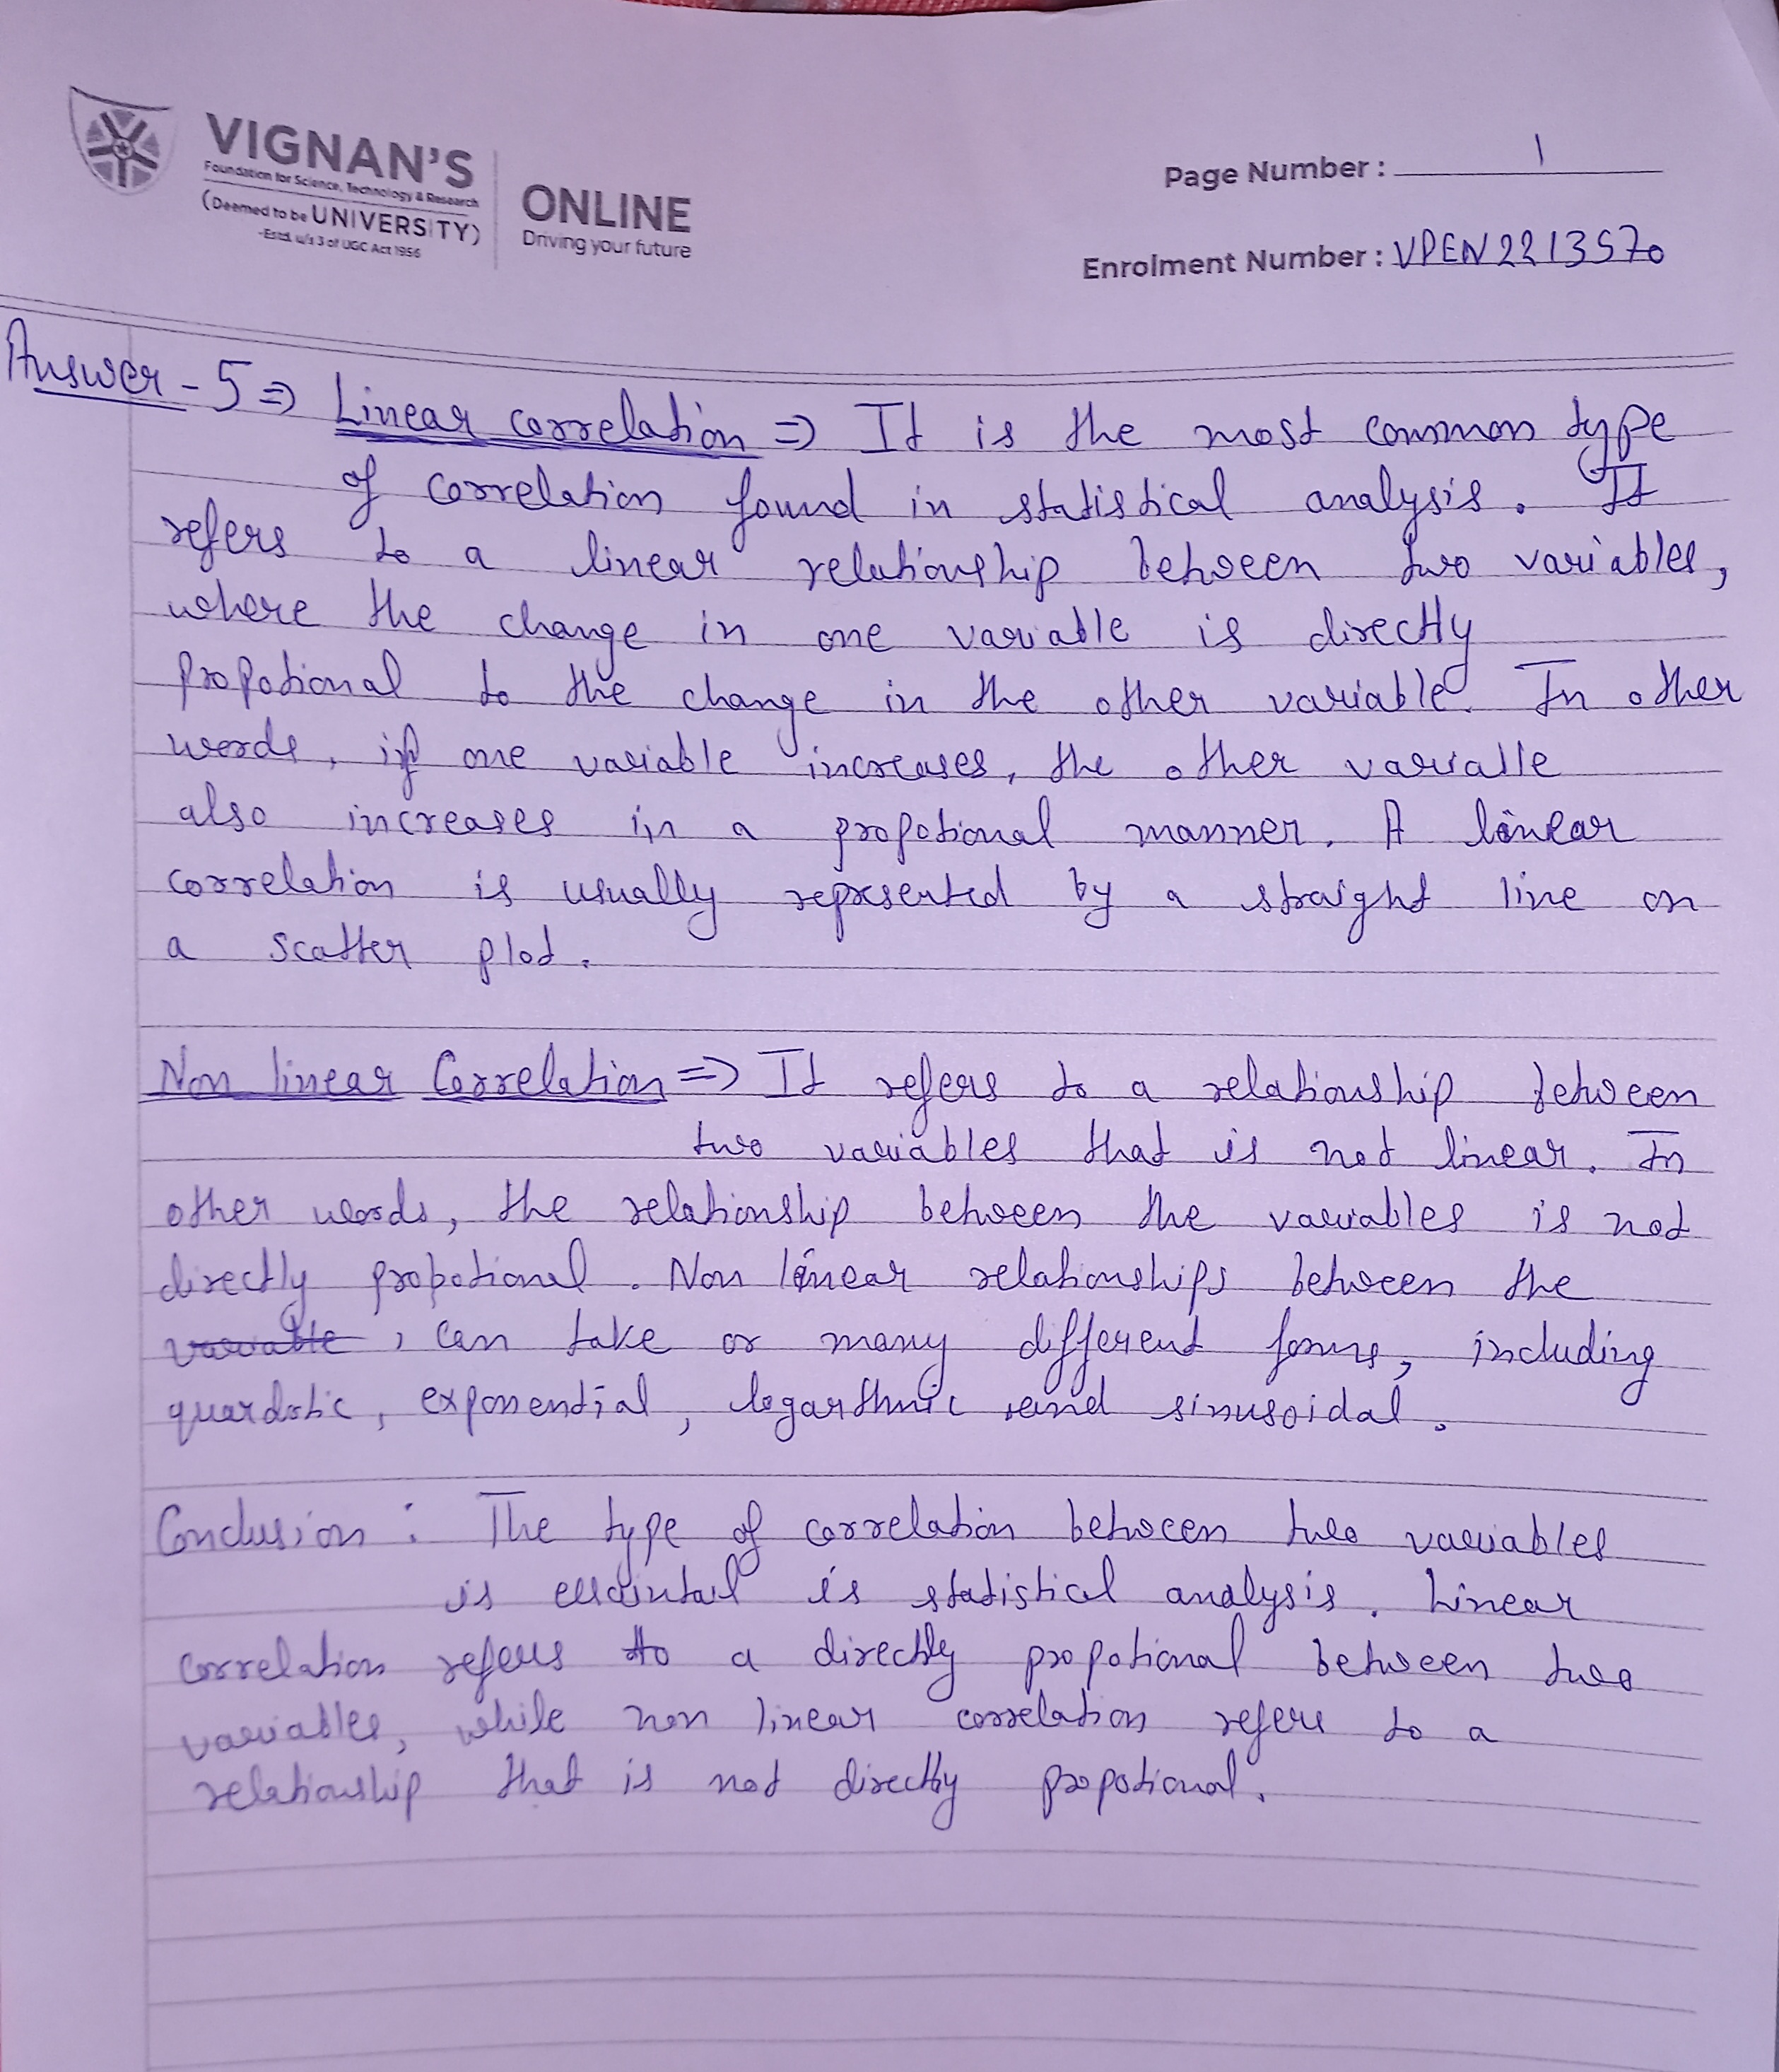 VIGNAN'S
Foundation for Science, Technology & Research
(Deemed to be UNIVERSITY)
-Estd. u/s 3 of UGC Act 1956
ONLINE
Driving your future
Page Number : 1
Enrolment Number : VPEN2213570
Answer - 5 => Linear correlation => It is the most common type
of correlation found in statistical analysis. It
refers to a linear relationship between two variables,
where the change in one variable is directly
propotional to the change in the other variable. In other
words, if one variable increases, the other variable
also increases in a propotional manner. A linear
correlation is usually represented by a straight line on
a scatter plot.
Non linear Correlation => It refers to a relationship between
two variables that is not linear. In
other words, the relationship between the variables is not
directly propotional. Non linear relationships between the
variable , can take or many different forms, including
quardatic, exponential, logarthmic and sinusoidal.
Conclusion : The type of correlation between two variables
is is statistical analysis. Linear
correlation refers to a directly propotional between two
variables, while non linear correlation refers to a
relationship that is not directly propotional.